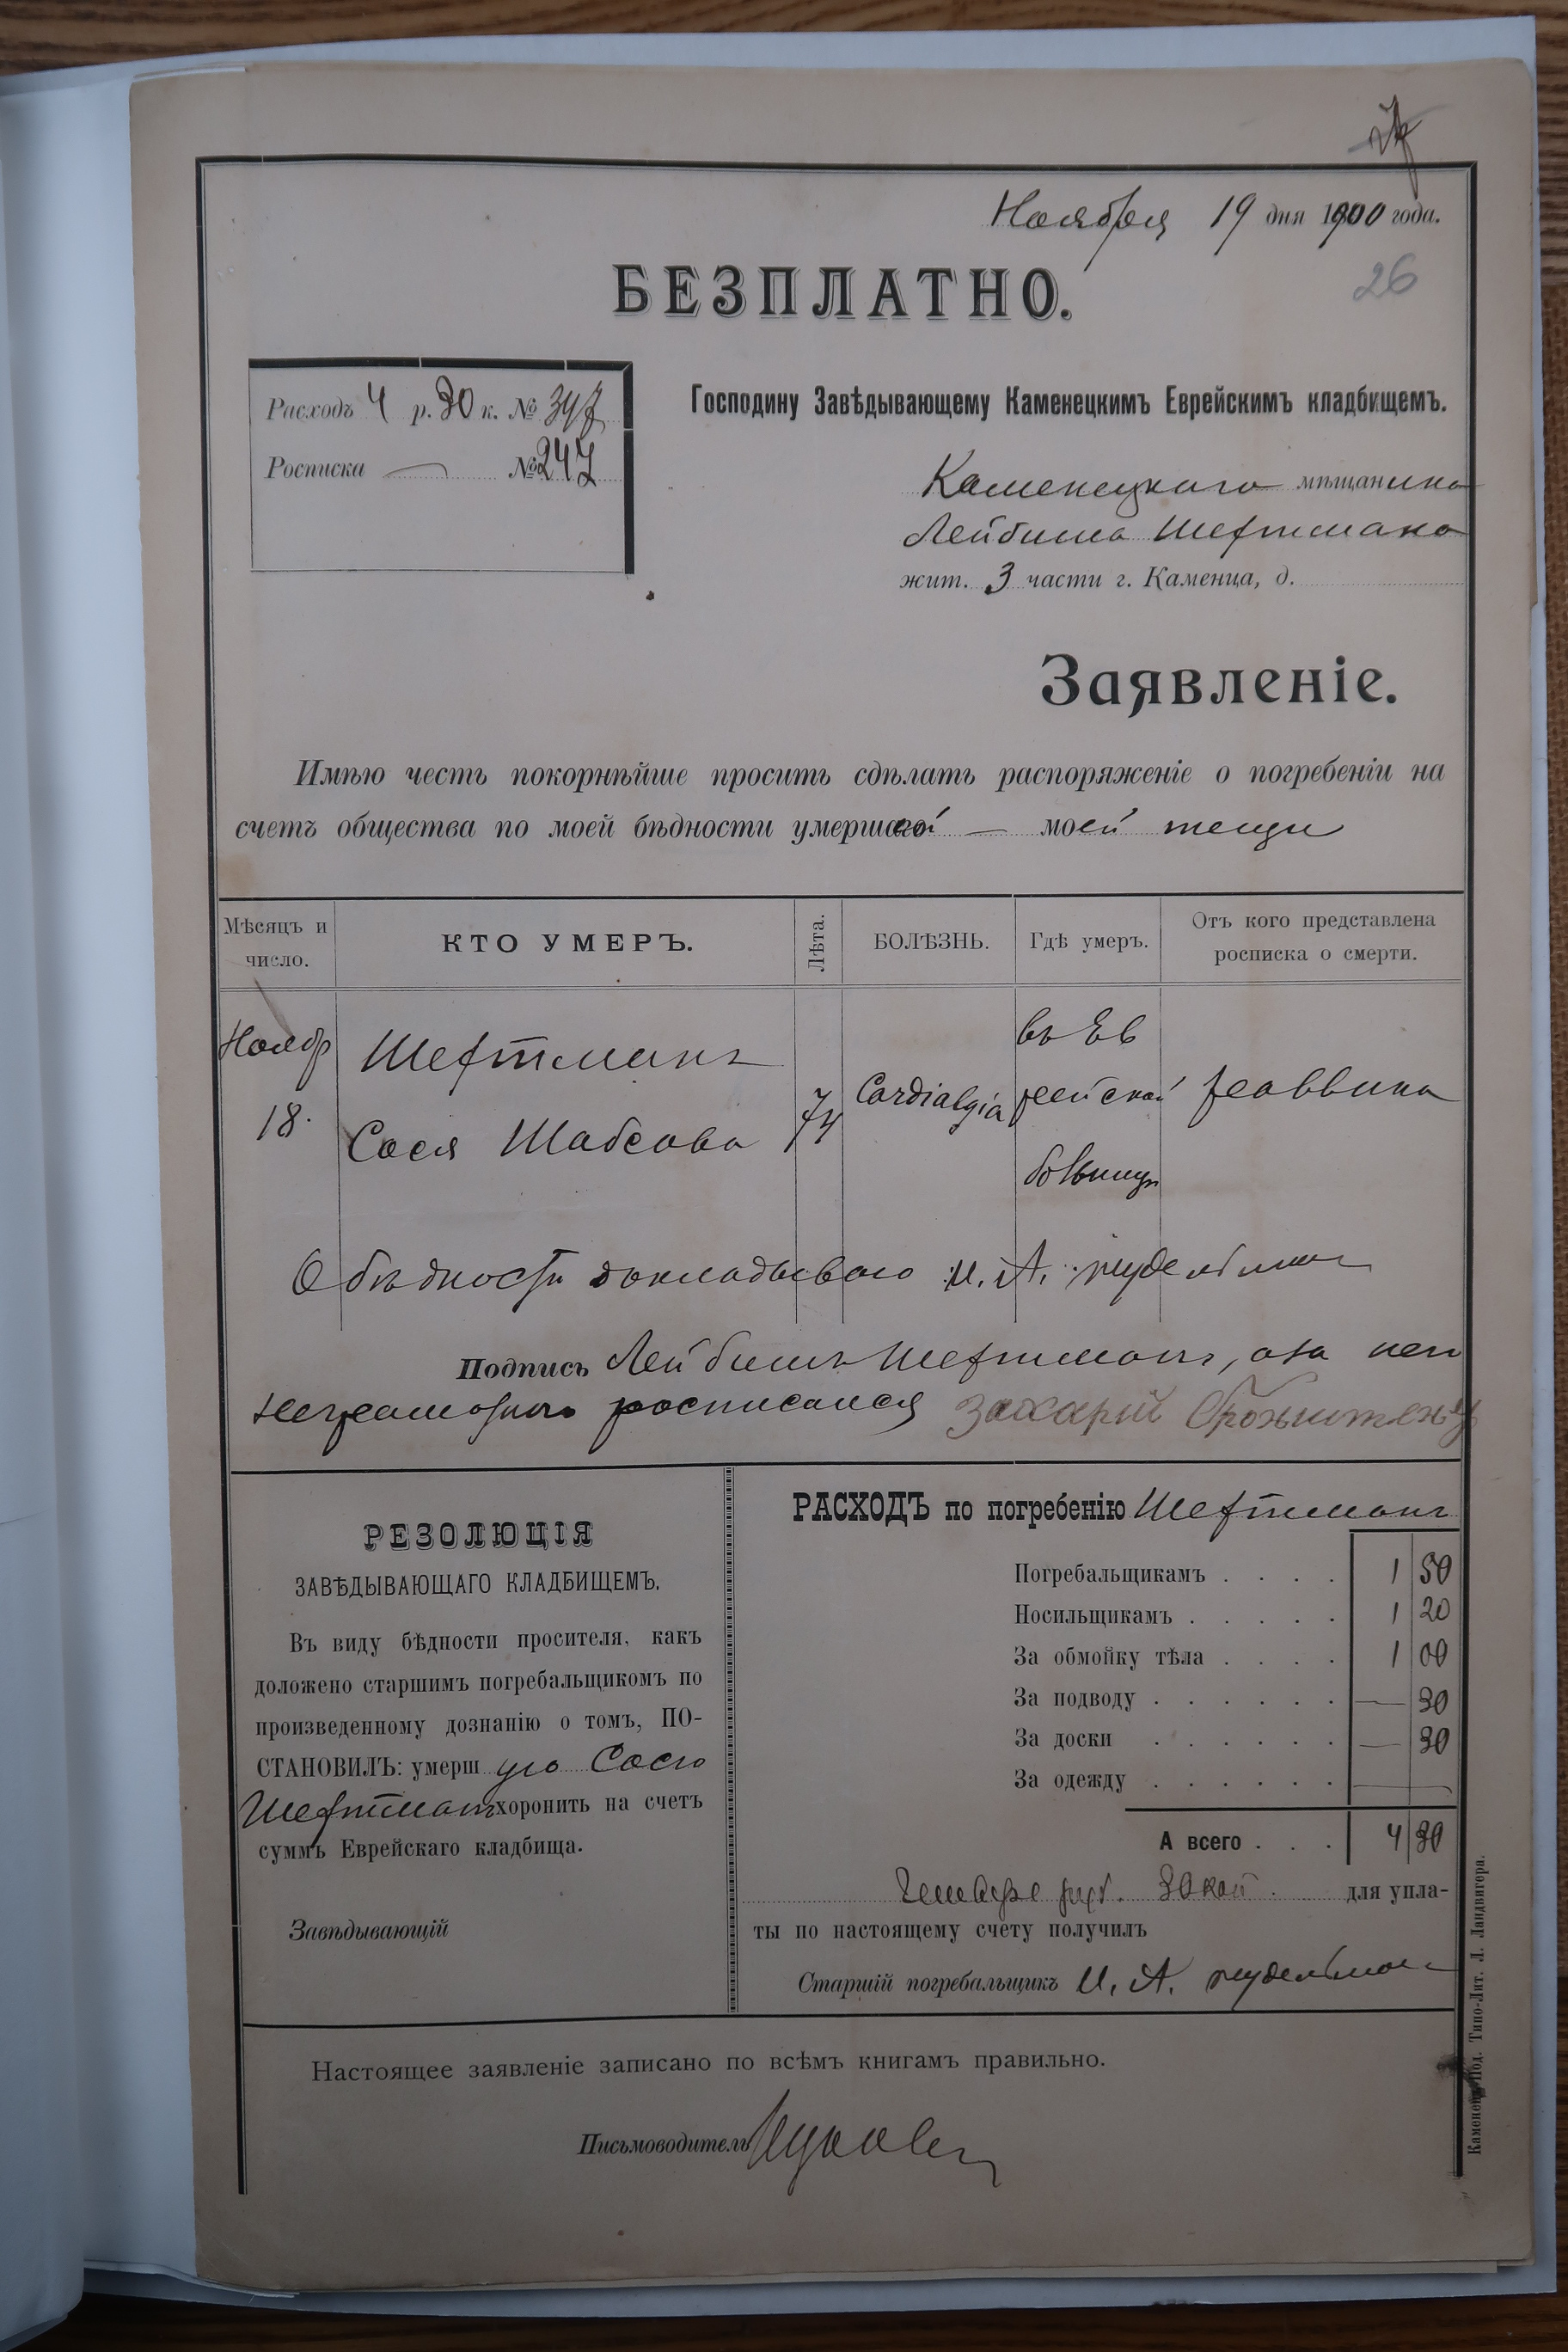 Ноября 19 дня 1900 года.
26
БЕЗПЛАТНО.
Расходъ 4 р. 30 к. № 347
Росписка — № 247
Господину Завѣдывающему Каменецкимъ Еврейскимъ кладбищемъ.
Каменецкаго мѣщанина
Лейбиша Шефтмана
жит. 3 части г. Каменца, д.
Заявленіе.
Имѣю честь покорнѣйше просить сдѣлать распоряженіе о погребеніи на
счетъ общества по моей бѣдности умершей — моей тещи
Мѣсяцъ и число.
КТО УМЕРЪ.
Лѣта.
БОЛѢЗНЬ.
Гдѣ умеръ.
Отъ кого представлена росписка о смерти.
Ноябр
18.
Шефтманъ
Сося Шабсова
74
Cardialgia
въ Ев
рейской
больницѣ
раввина
О бѣдности докладываю И. А.
Подпись Лейбишъ Шефтманъ, а за него
неграмотнаго росписался Захарій
РЕЗОЛЮЦІЯ
ЗАВѢДЫВАЮЩАГО КЛАДБИЩЕМЪ.
Въ виду бѣдности просителя, какъ
доложено старшимъ погребальщикомъ по
произведенному дознанію о томъ, ПО-
СТАНОВИЛЪ: умершую Сосю
Шефтманъ хоронить на счетъ
суммъ Еврейскаго кладбища.
Завѣдывающій
РАСХОДЪ по погребенію Шефтманъ
Погребальщикамъ . . . . 1 50
Носильщикамъ . . . . . 1 20
За обмойку тѣла . . . . 1 00
За подводу . . . . . . — 30
За доски . . . . . . — 30
За одежду . . . . . . —
А всего . . . 4 30
Четыре руб. 30 коп. для упла-
ты по настоящему счету получилъ
Старшій погребальщикъ И. А.
Настоящее заявленіе записано по всѣмъ книгамъ правильно.
Письмоводитель
Каменец-Под. Типо-Лит. Л. Ландвигера.